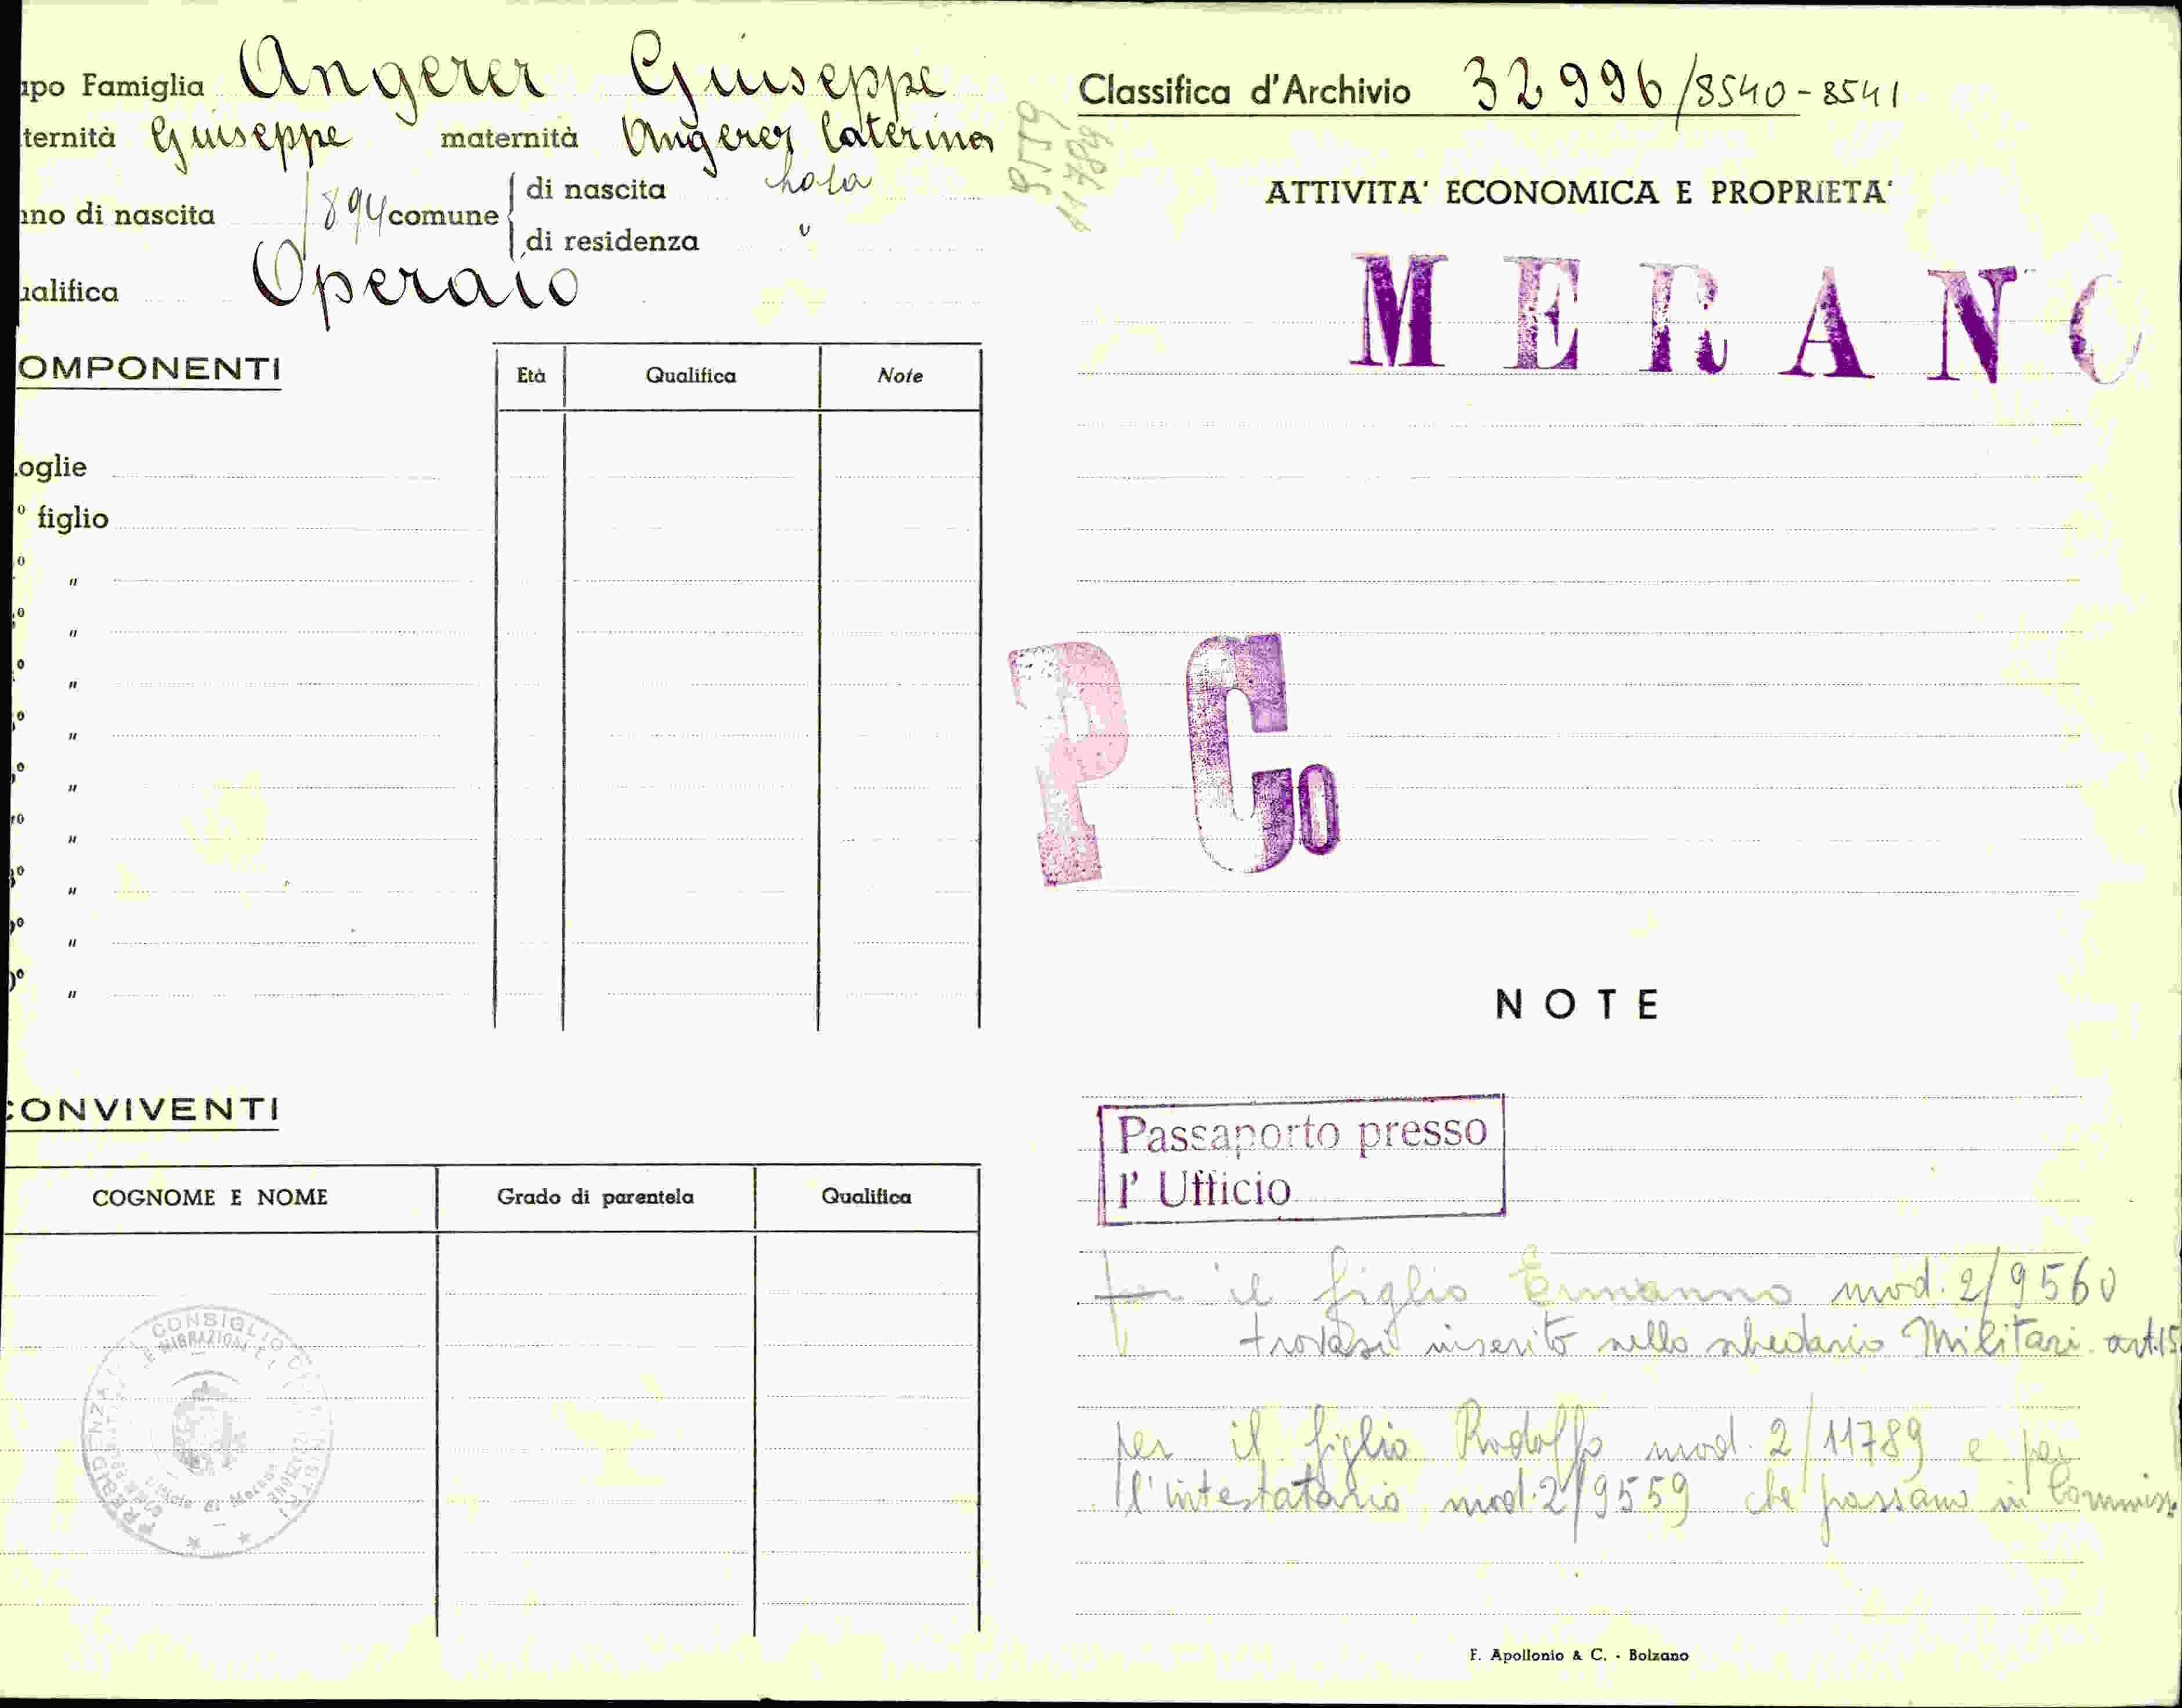 apo Famiglia Angerer Giuseppe
ternità Giuseppe maternità Angerer Caterina
nno di nascita 1894 comune di nascita
di residenza "
ualifica Operaio
OMPONENTI
Età Qualifica Note
oglie
º figlio
º "
º "
º "
º "
º "
º "
º "
º "
º "
CONVIVENTI
COGNOME E NOME Grado di parentela Qualifica
CONSIGLIO DEI MINISTRI
Classifica d'Archivio 32996/8540-8541
9559
11789
ATTIVITA' ECONOMICA E PROPRIETA'
MERANO
P Co
NOTE
Passaporto presso
l' Ufficio
per il figlio Ermanno mod. 2/9560
trovasi inserito nello schedario Militari art.15
per il figlio Rodolfo mod. 2/11789 e per
l'intestatario mod. 2/9559 che passano in Commiss.
F. Apollonio & C. - Bolzano